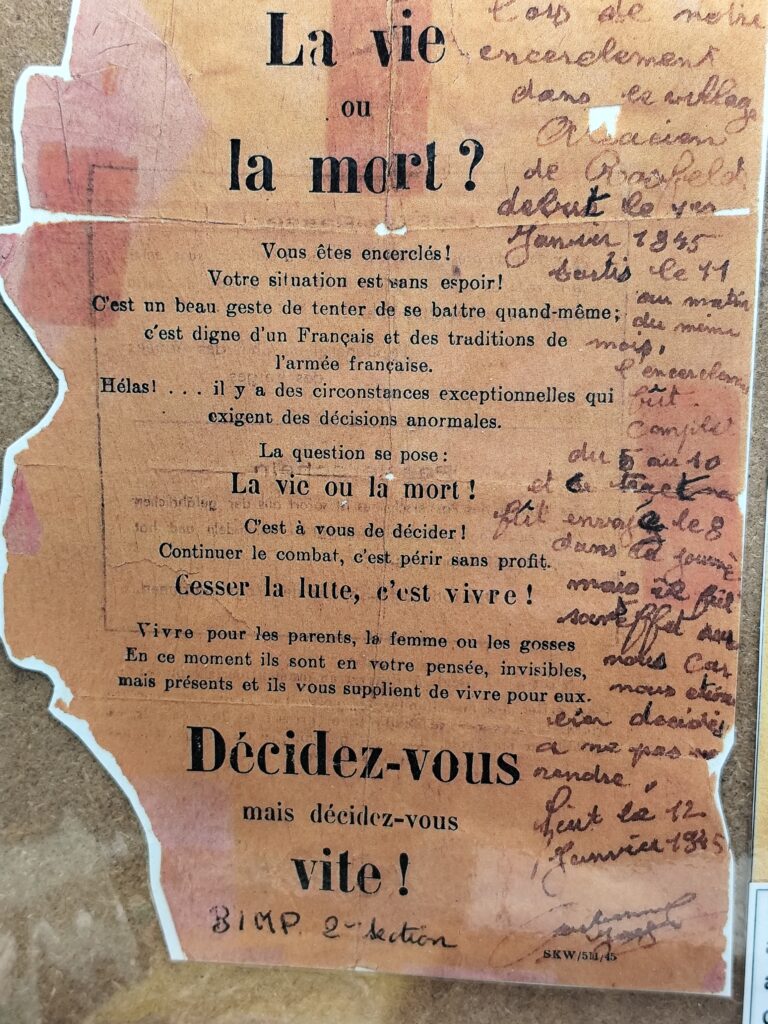 La vie
ou
la mort ?
Vous êtes encerclés !
Votre situation est sans espoir !
C'est un beau geste de tenter de se battre quand-même;
c'est digne d'un Français et des traditions de
l'armée française.
Hélas! . . . il y a des circonstances exceptionnelles qui
exigent des décisions anormales.
La question se pose :
La vie ou la mort !
C'est à vous de décider !
Continuer le combat, c'est périr sans profit.
Cesser la lutte, c'est vivre !
Vivre pour les parents, la femme ou les gosses
En ce moment ils sont en votre pensée, invisibles,
mais présents et ils vous supplient de vivre pour eux.
Décidez-vous
mais décidez-vous
vite !
BIMP 2me section
SKW/511/45
Lors de notre
encerclement
dans ce village
Alsacien
de
debut le
Janvier 1945
le 11
au matin
du même
mois,
l'encercleme
fut
complet
du 5 au 10
et ce tract
fût envoyé le 8
dans la journé
mais ne fut
nous car
nous étions
decidés
a ne pas se
rendre
le 12
Janvier 1945